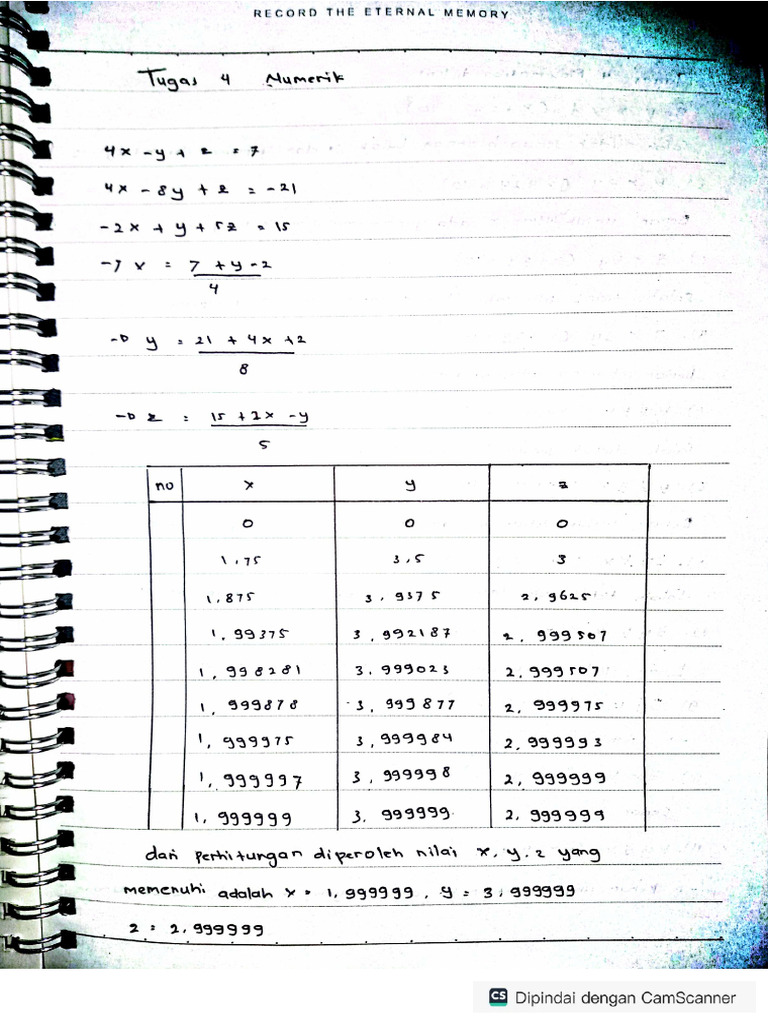 RECORD THE ETERNAL MEMORY
Tugas 4 Numerik
4x - y + z = 7
4x - 8y + z = -21
-2x + y + 5z = 15
-7 x = 7 + y - z
4
-D y = 21 + 4x + z
8
-D z = 15 + 2x - y
5
no x y z
0 0 0
1,75 3,5 3
1,875 3,9375 2,9625
1,99375 3,992187 2,999507
1,998281 3.999023 2.999507
1,999878 3,999877 2,999975
1,999975 3,999984 2,999993
1,999997 3,999998 2,999999
1,999999 3.999999 2,999999
dari perhitungan diperoleh nilai x, y, z yang
memenuhi adalah x = 1,999999, y = 3,999999
z = 2,999999
CS Dipindai dengan CamScanner